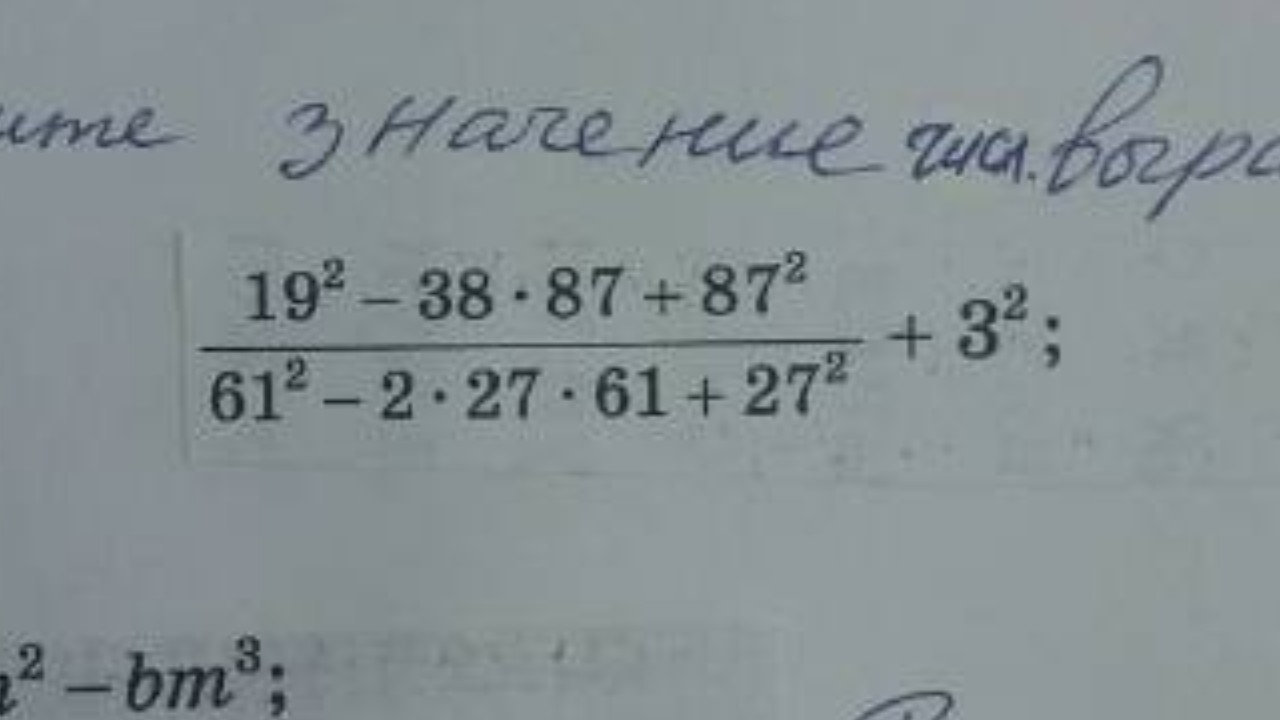 ите значение числ. выра
19² – 38 · 87 + 87²
61² – 2 · 27 · 61 + 27²
+ 3²;
² – bm³;